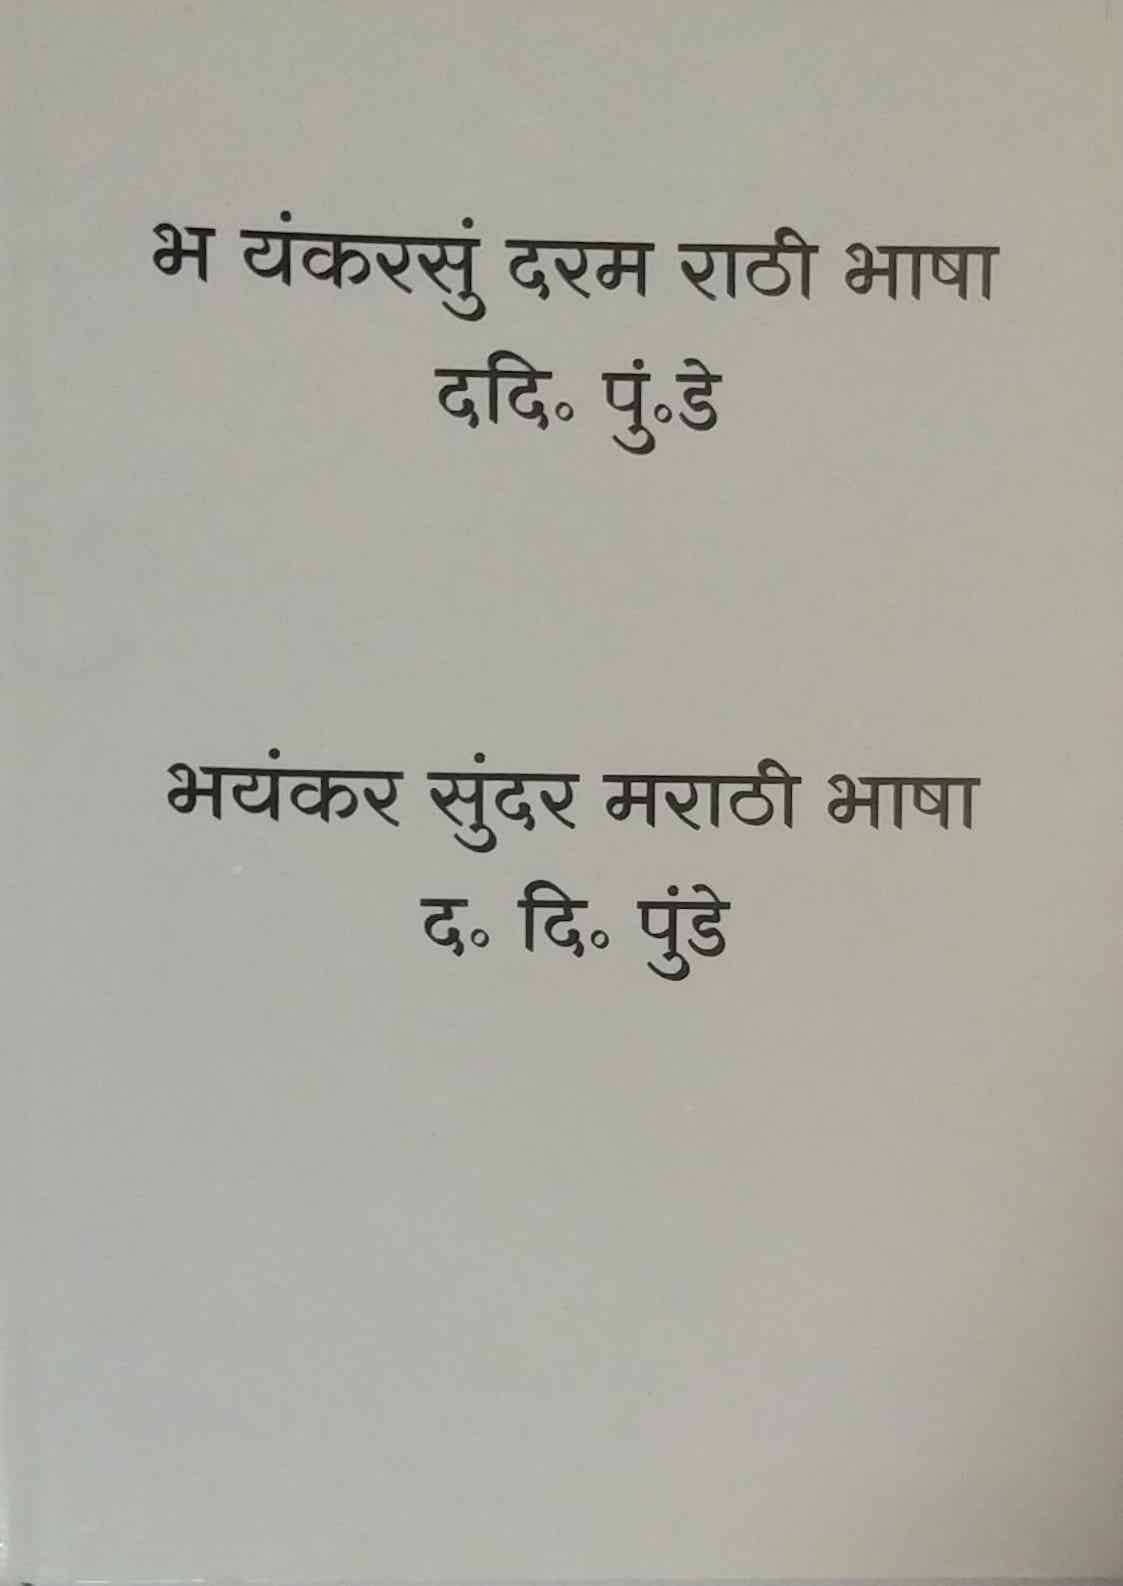 भ यंकरसुं दरम राठी भाषा
ददि॰ पुं॰डे
भयंकर सुंदर मराठी भाषा
द॰ दि॰ पुंडे